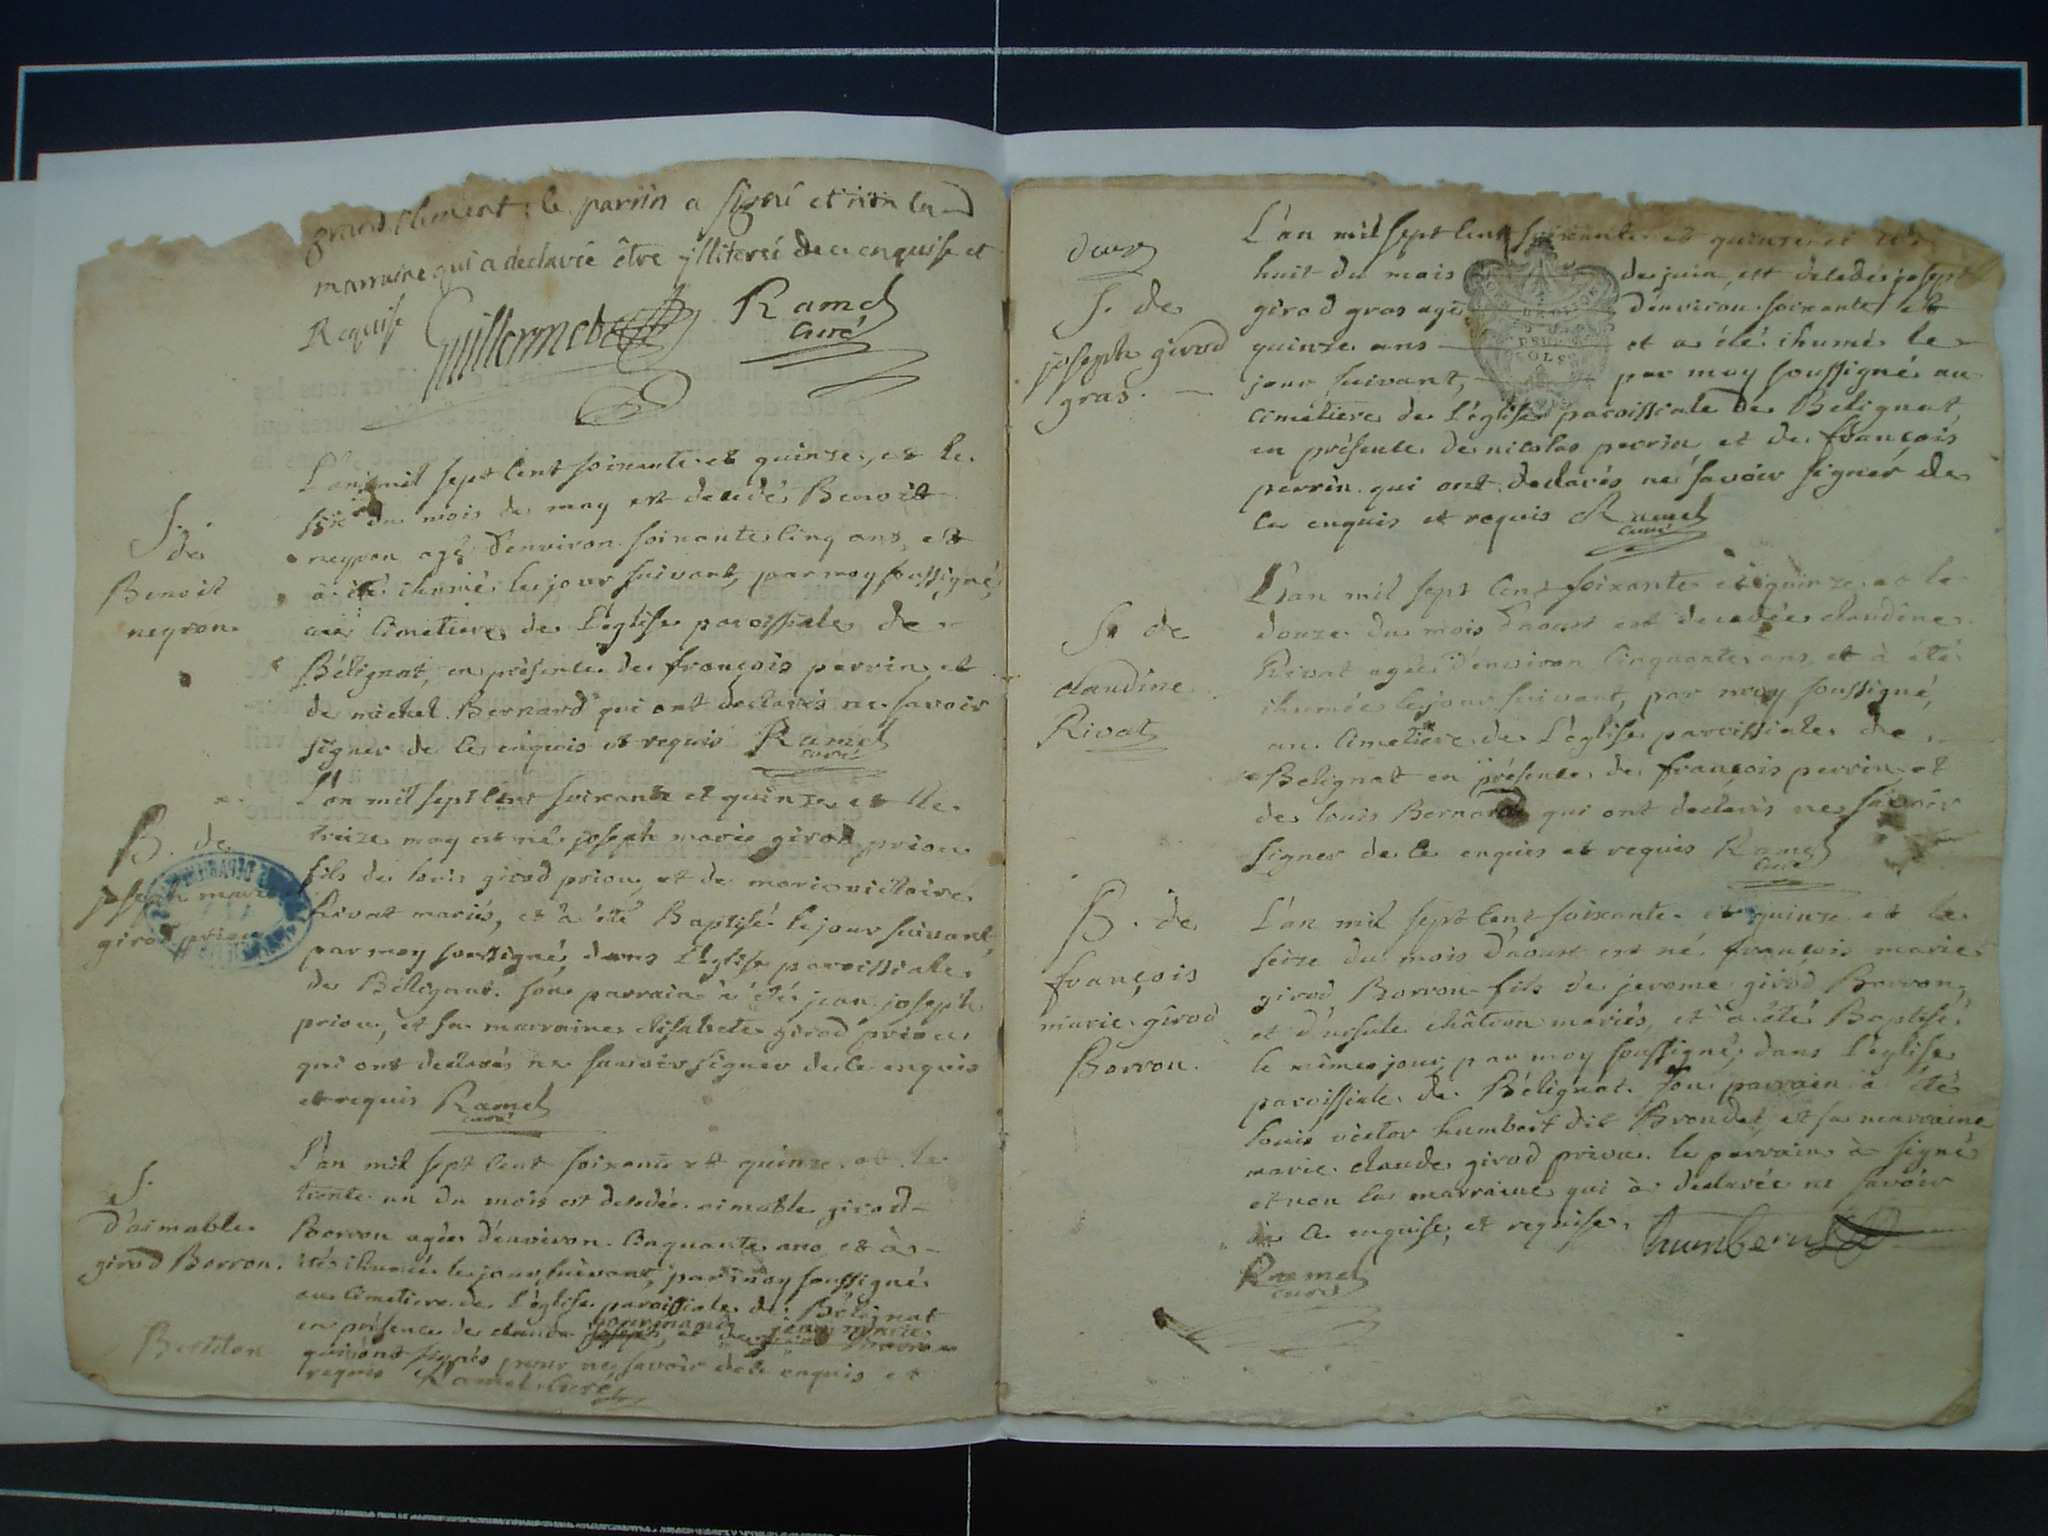 grand Clement; le parrin a signé et non la
marraine qui a déclaré être illiteré de ce enquise et
Requise Guillermet Ramel
Curé
S.
de
Benoit
neyron
L'an mil sept cent soixante et quinze, et le
six du mois de may est decedés Benoit
neyron agé d'environ soixante cinq ans, et
à été ihumé le jour suivant, par moy soussigné,
au Cimetiere de L'église paroissiale de
Bélignat, en présence de françois perrin et
de michel Bernard qui ont declarés ne savoir
signer de ce enquis et requis Ramel
curé
B. de
joseph marie
girod priou
L'an mil sept cent soixante et quinze et le
treize may est né joseph marie girod priou
fils de louis girod priou, et de marie victoire
Rivat mariés, et à été Baptisé le jour suivant
par moy soussigné, dans L'église paroissiale
de Bélignat. son parrain à été jean joseph
priou, et sa marraine elisabete girod priou
qui ont declarés ne savoir signer de ce enquis
et requis Ramel
curé
S.
d'aimable
girod Borron.
L'an mil sept cent soixante et quinze et le
trente un du mois est decedée aimable girod
Borron agée d'environ Cinquante ans, et à
été ihumée le jour suivant, par moy soussigné
au Cimetiere de L'église paroissiale de Bélignat
en présence de claude gourmand, et jean marie
Bertillon
qui ont signés pour ne savoir de ce enquis et
requis Ramel Curé
deux
S. de
joseph girod
gras.
L'an mil sept cent soixante et quinze et le
huit du mois de juin, est decedés joseph
girod gras agé d'environ soixante et
quinze ans et a été ihumé le
jour suivant, par moy soussigné au
cimetiere de L'église paroissiale de Bélignat
en présence de nicolas perrin et de françois
perrin qui ont declarés ne savoir signer de
ce enquis et requis Ramel
curé
S. de
claudine
Rivat
L'an mil sept cent soixante et quinze et le
douze du mois d'aoust est decedée claudine
Rivat agée d'environ Cinquante ans, et à été
ihumée le jour suivant, par moy soussigné,
au Cimetiere de L'église paroissiale de
Belignat en présence de françois perrin et
de louis Bernard qui ont declarés ne savoir
signer de ce enquis et requis Ramel
Curé
B. de
françois
marie girod
Borron.
L'an mil sept cent soixante et quinze et le
seize du mois d'aoust est né françois marie
girod Borron fils de jerome girod Borron,
et d'ursule châtron mariés, et à été Baptisé
le même jour, par moy soussigné, dans L'église
paroissiale de Bélignat. son parrain à été
louis victor humbert dit Brondet et sa marraine
marie claude girod priou. le parrain à signé
et non la marraine qui à declarée ne savoir
de ce enquise, et requise. humbert
Ramel
curé